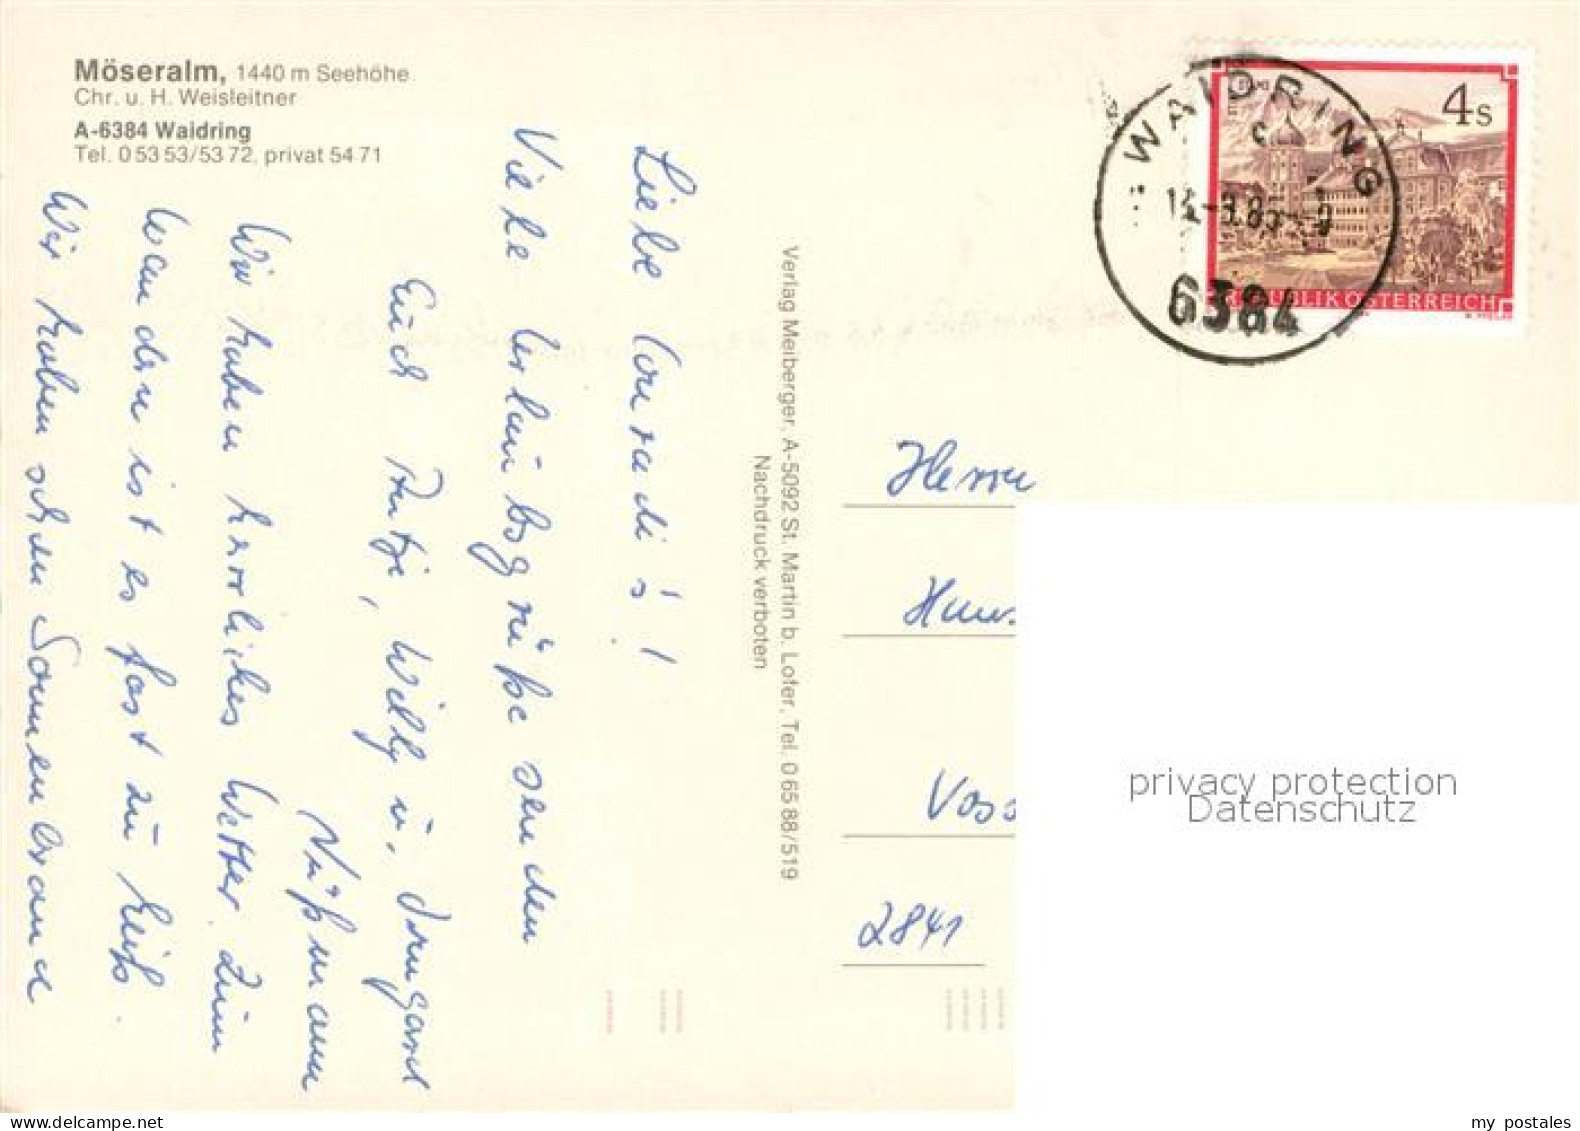 Möseralm, 1440 m Seehöhe
Chr. u. H. Weisleitner
A-6384 Waidring
Tel. 0 53 53/53 72, privat 54 71
Liebe Conradi's!
Viele Urlaubsgrüße senden
Euch Putzi, Willy u. Irmgard
Nüßmann
Wir haben herrliches Wetter. Zum
Wandern ist es fast zu heiß.
Wir haben schon Sonnenbrand
Verlag Meiberger, A-5092 St. Martin b. Lofer, Tel. 0 65 88/519
Nachdruck verboten
WAIDRING
c
6384
4s
REPUBLIK ÖSTERREICH
Herrn
Voss
2841
privacy protection
Datenschutz
my postales